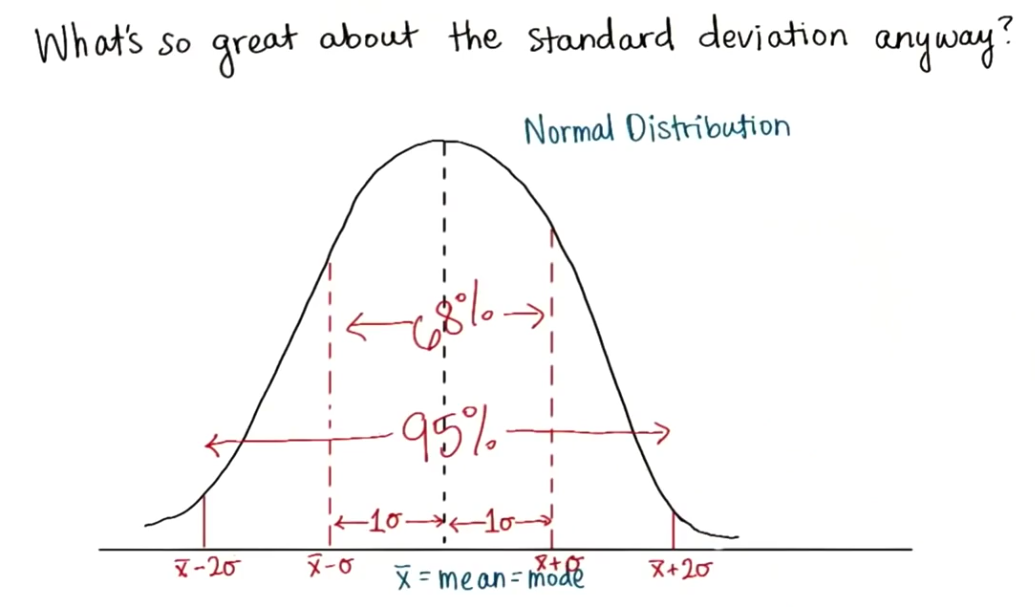 What's so great about the standard deviation anyway?
Normal Distribution
68%
95%
1σ 1σ
x̄-2σ x̄-σ x̄+σ x̄+2σ
x̄ = mean = mode